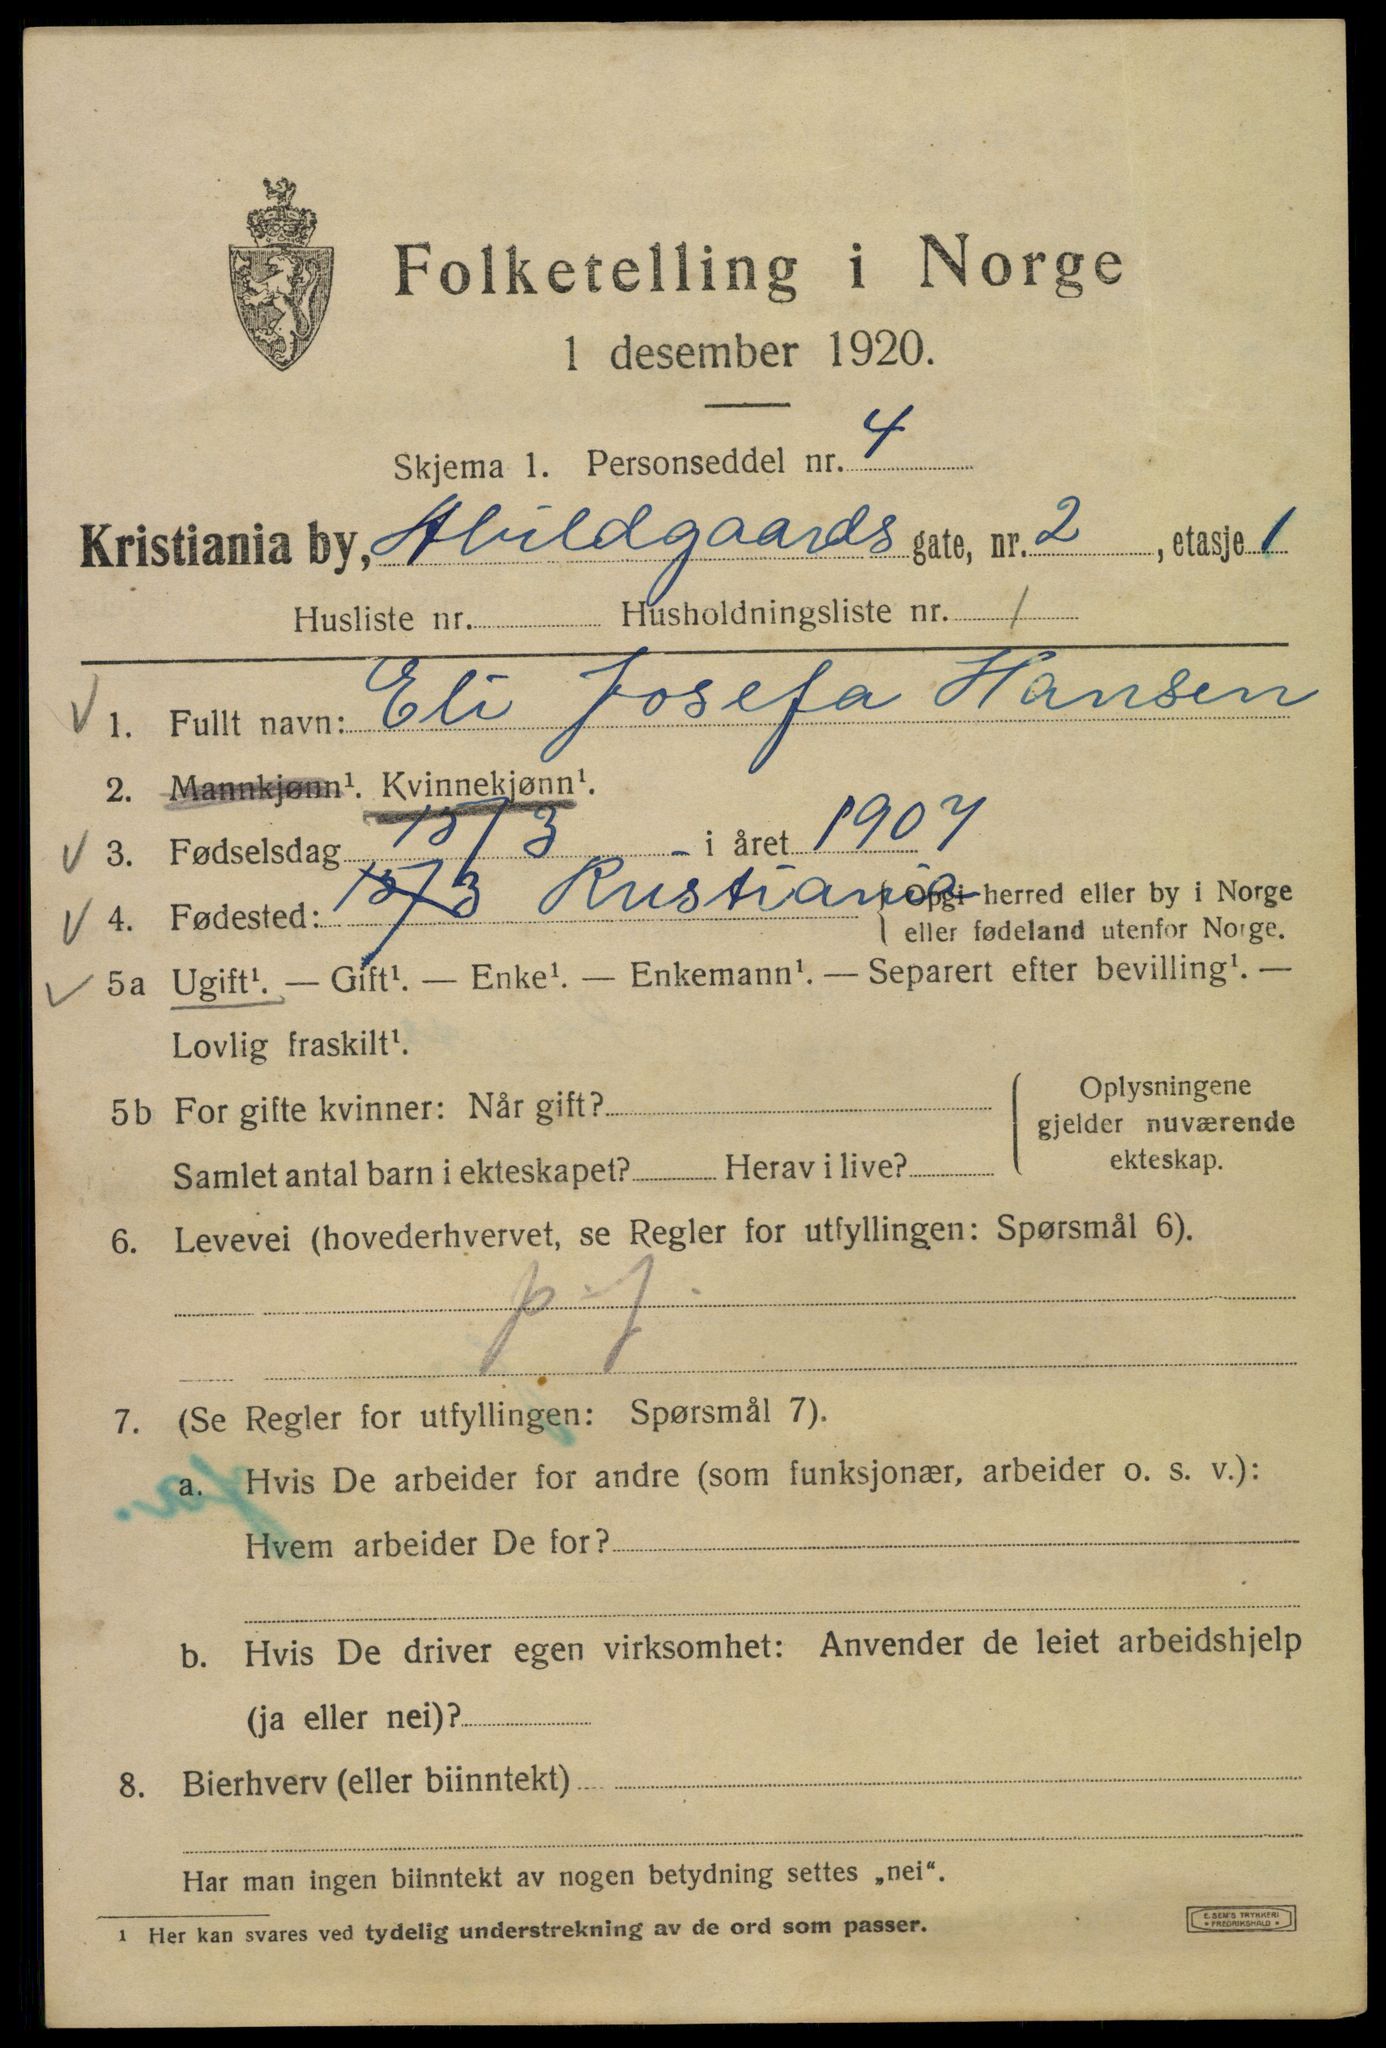 Folketelling i Norge
1 desember 1920.
Skjema 1. Personseddel nr. 4
Kristiania by, Abildgaards gate, nr. 2, etasje 1
Husliste nr. Husholdningsliste nr. 1
1. Fullt navn: Eli Josefa Hansen
2. Mannkjønn¹. Kvinnekjønn¹.
3. Fødselsdag 15/3 i året 1907
4. Fødested: 15/3 Kristiania { Opgi herred eller by i Norge
eller fødeland utenfor Norge.
5a Ugift¹. — Gift¹. — Enke¹. — Enkemann¹. — Separert efter bevilling¹. —
Lovlig fraskilt¹.
5b For gifte kvinner: Når gift?
Samlet antal barn i ekteskapet? Herav i live?
Oplysningene
gjelder nuværende
ekteskap.
6. Levevei (hovederhvervet, se Regler for utfyllingen: Spørsmål 6).
p. f.
7. (Se Regler for utfyllingen: Spørsmål 7).
a. Hvis De arbeider for andre (som funksjonær, arbeider o. s. v.):
Hvem arbeider De for?
b. Hvis De driver egen virksomhet: Anvender de leiet arbeidshjelp
(ja eller nei)?
8. Bierhverv (eller biinntekt)
Har man ingen biinntekt av nogen betydning settes „nei“.
1 Her kan svares ved tydelig understrekning av de ord som passer.
E. SEM'S TRYKKERI
* FREDRIKSHALD *